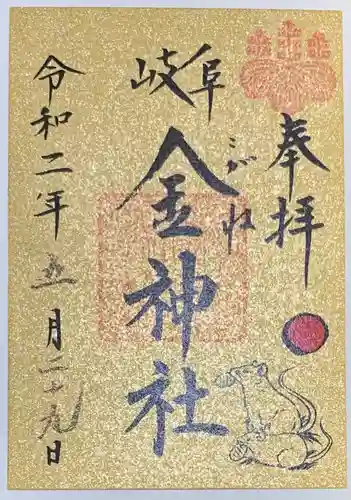 奉拝
岐阜
こがね
金神社
令和二年五月二十九日